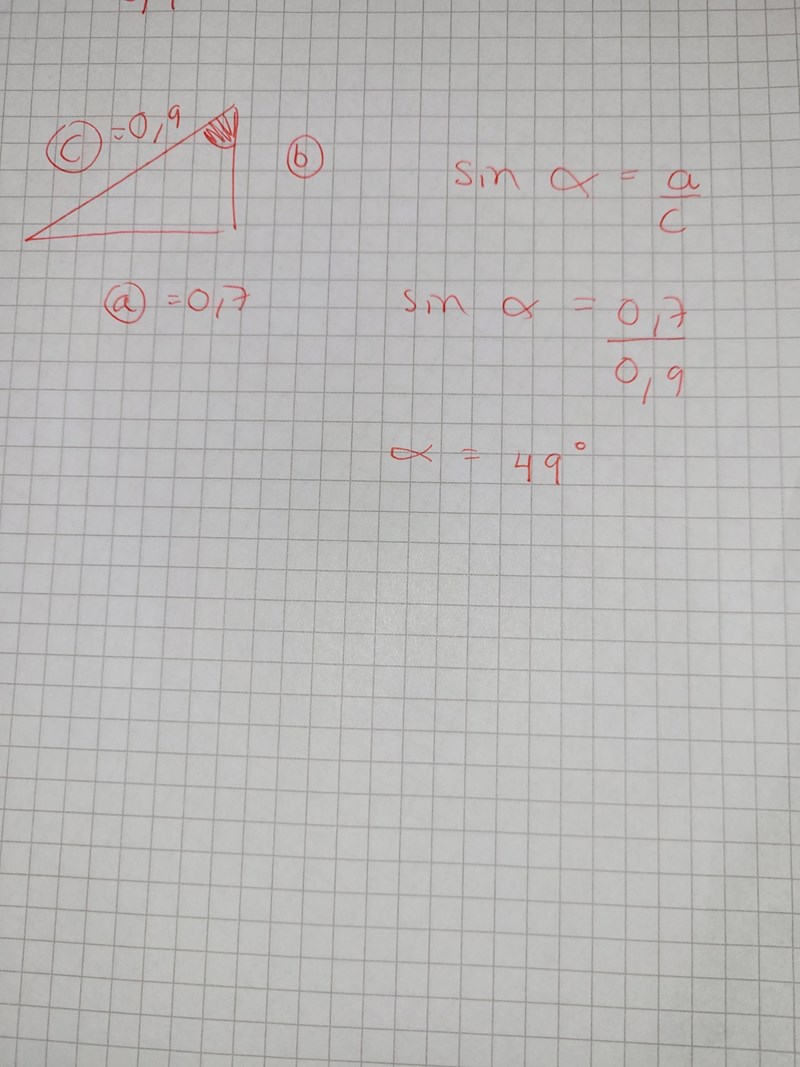 c = 0,9
b
a = 0,7
sin α = a/c
sin α = 0,7/0,9
α = 49°